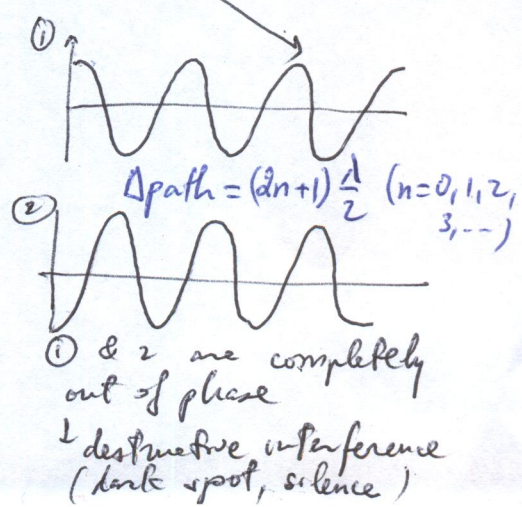 ①
Δpath = (2n+1) λ/2 (n=0,1,2,
3,---)
②
① & 2 are completely
out of phase
↓ destructive interference
(dark spot, silence)